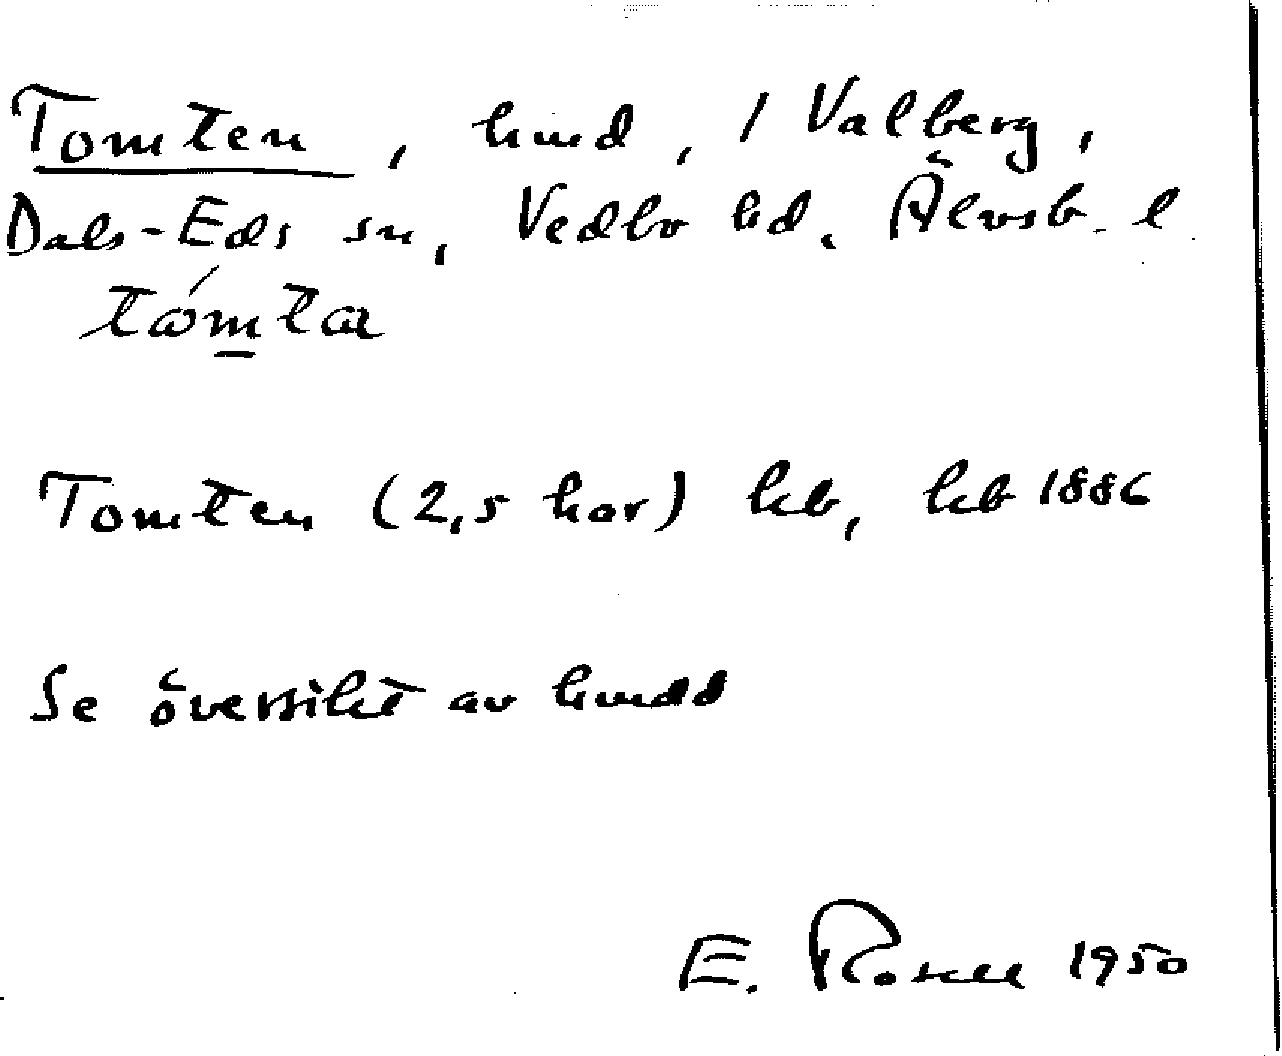 Tomten, hmd, 1 Valberg,
Dals-Eds sn, Vedbo hd. Älvsb. l.
tómta
Tomten (2,5 har) hb, hb 1886
Se översikt av hmdd
E. Rosell 1950